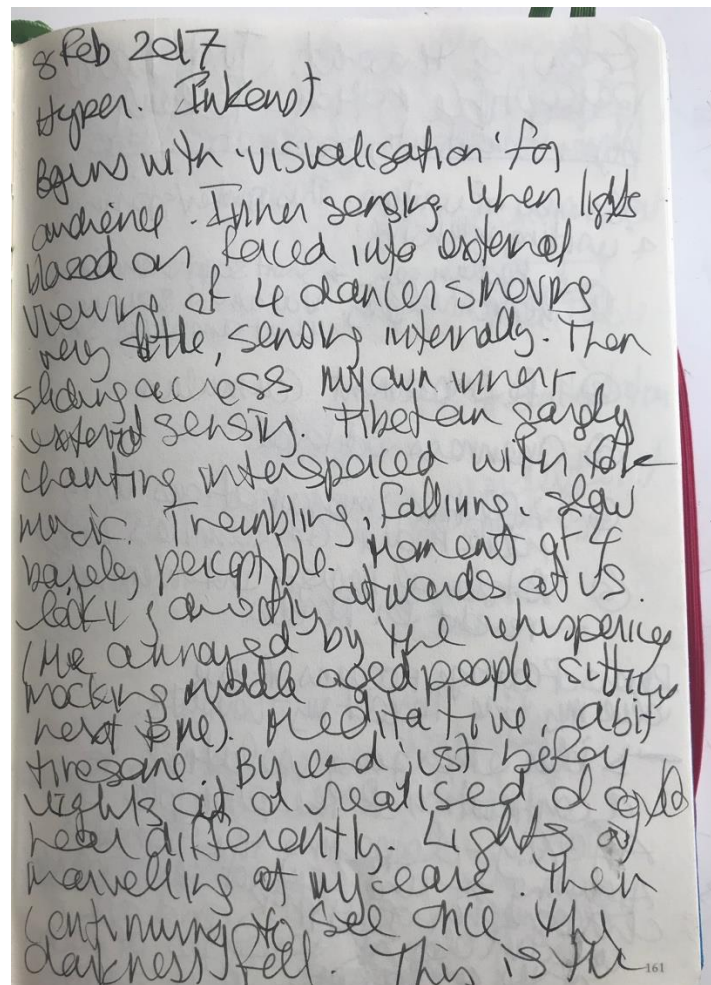 8 Feb 2017
Hyper.
Begins with 'visualisation' for
audience. Inner sensing when lights
blazed on faced into external
viewing of 4 dancers moving
very little, sensing internally. Then
sliding across my own inner
external sensing. Tibetan gargly
chanting interspaced with folk
music. Trembling, falling, slow
barely perceptible. Moment of 4
looking at us.
(Me annoyed by the whispering
mocking middle aged people sitting
next to me). Meditative, a bit
tiresome. By end just before
lights out I realised I could
hear differently. Lights
marvelling at my ears. Then
continuing to see once the
darkness fell. This is the
161